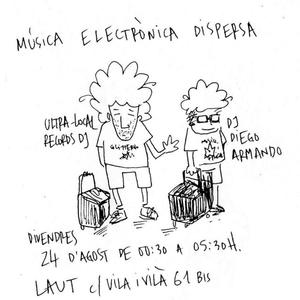 MÚSICA ELECTRÒNICA DISPERSA
ULTRA-LOCAL
RECORDS DJ
DJ
DIEGO
ARMANDO
DIVENDRES
24 D'AGOST DE 00:30 A 05:30H.
LAUT c/ VILA i VILÀ 61 BIS